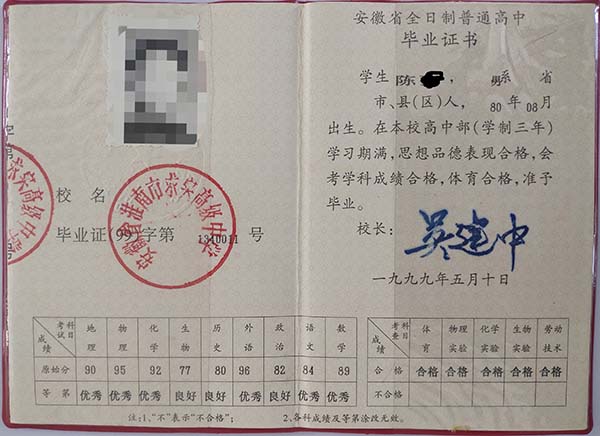 校 名
安徽省淮南市蔡家岗高级中学
毕业证(99)字第 1340011 号
安徽省全日制普通高中
毕业证书
学生 陈 , 男系 省
市、县(区)人, 80 年 08 月
出生。在本校高中部(学制三年)
学习期满,思想品德表现合格,会
考学科成绩合格,体育合格,准予
毕业。
校长: 吴建中
一九九九年五月十日
考试科目 成绩 地理 物理 化学 生物 历史 外语 政治 语文 数学
原始分 90 95 92 77 80 96 82 84 89
等 第 优秀 优秀 优秀 良好 良好 优秀 良好 优秀 优秀
考查科目 成绩 体育 物理实验 化学实验 生物实验 劳动技术
合 格 合格 合格 合格 合格 合格
不合格
注:1、“不”表示“不合格”; 2、各科成绩及等第涂改无效。